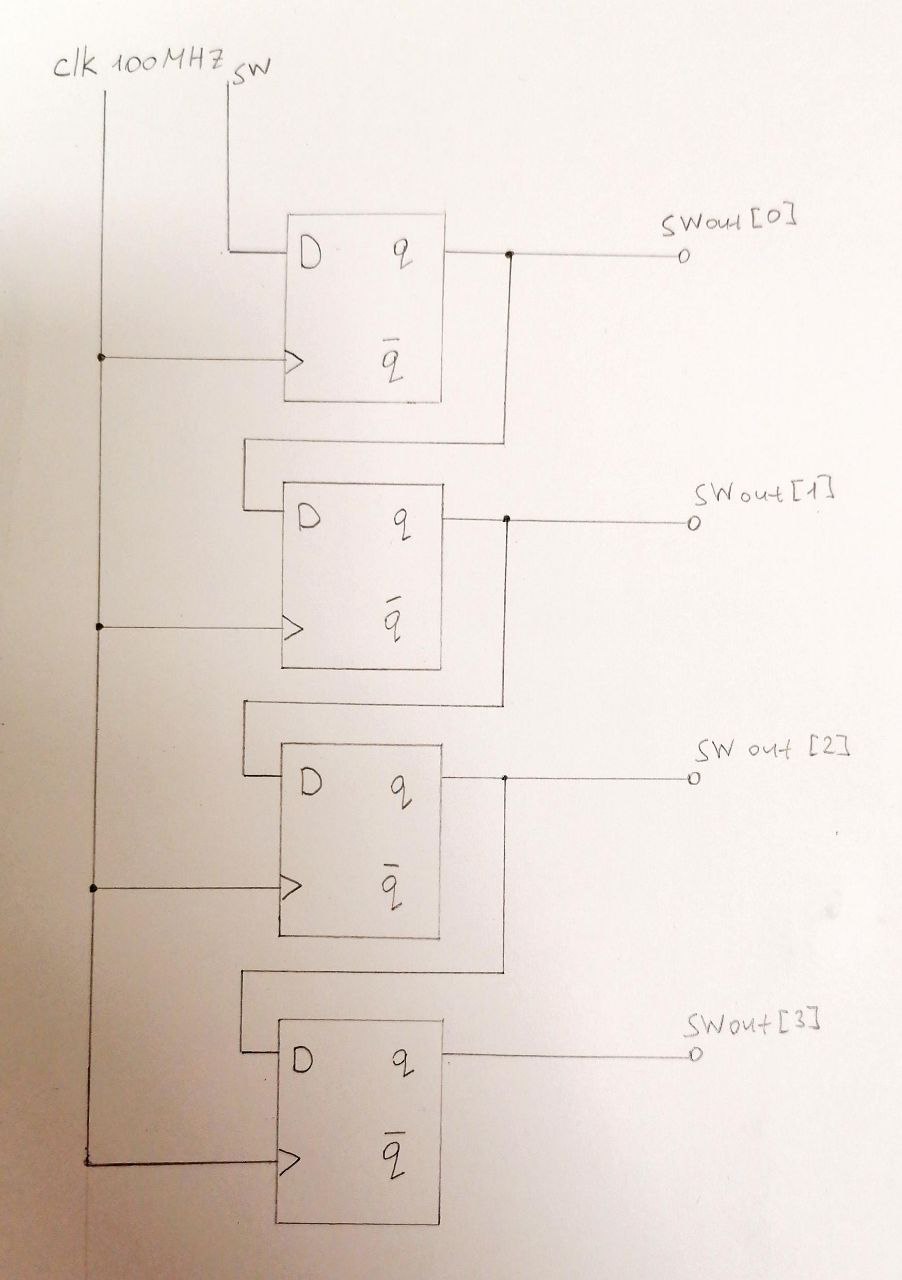 clk 100MHZ SW
SWout[0]
D q
q̅
SWout[1]
D q
q̅
SW out [2]
D q
q̅
SWout[3]
D q
q̅